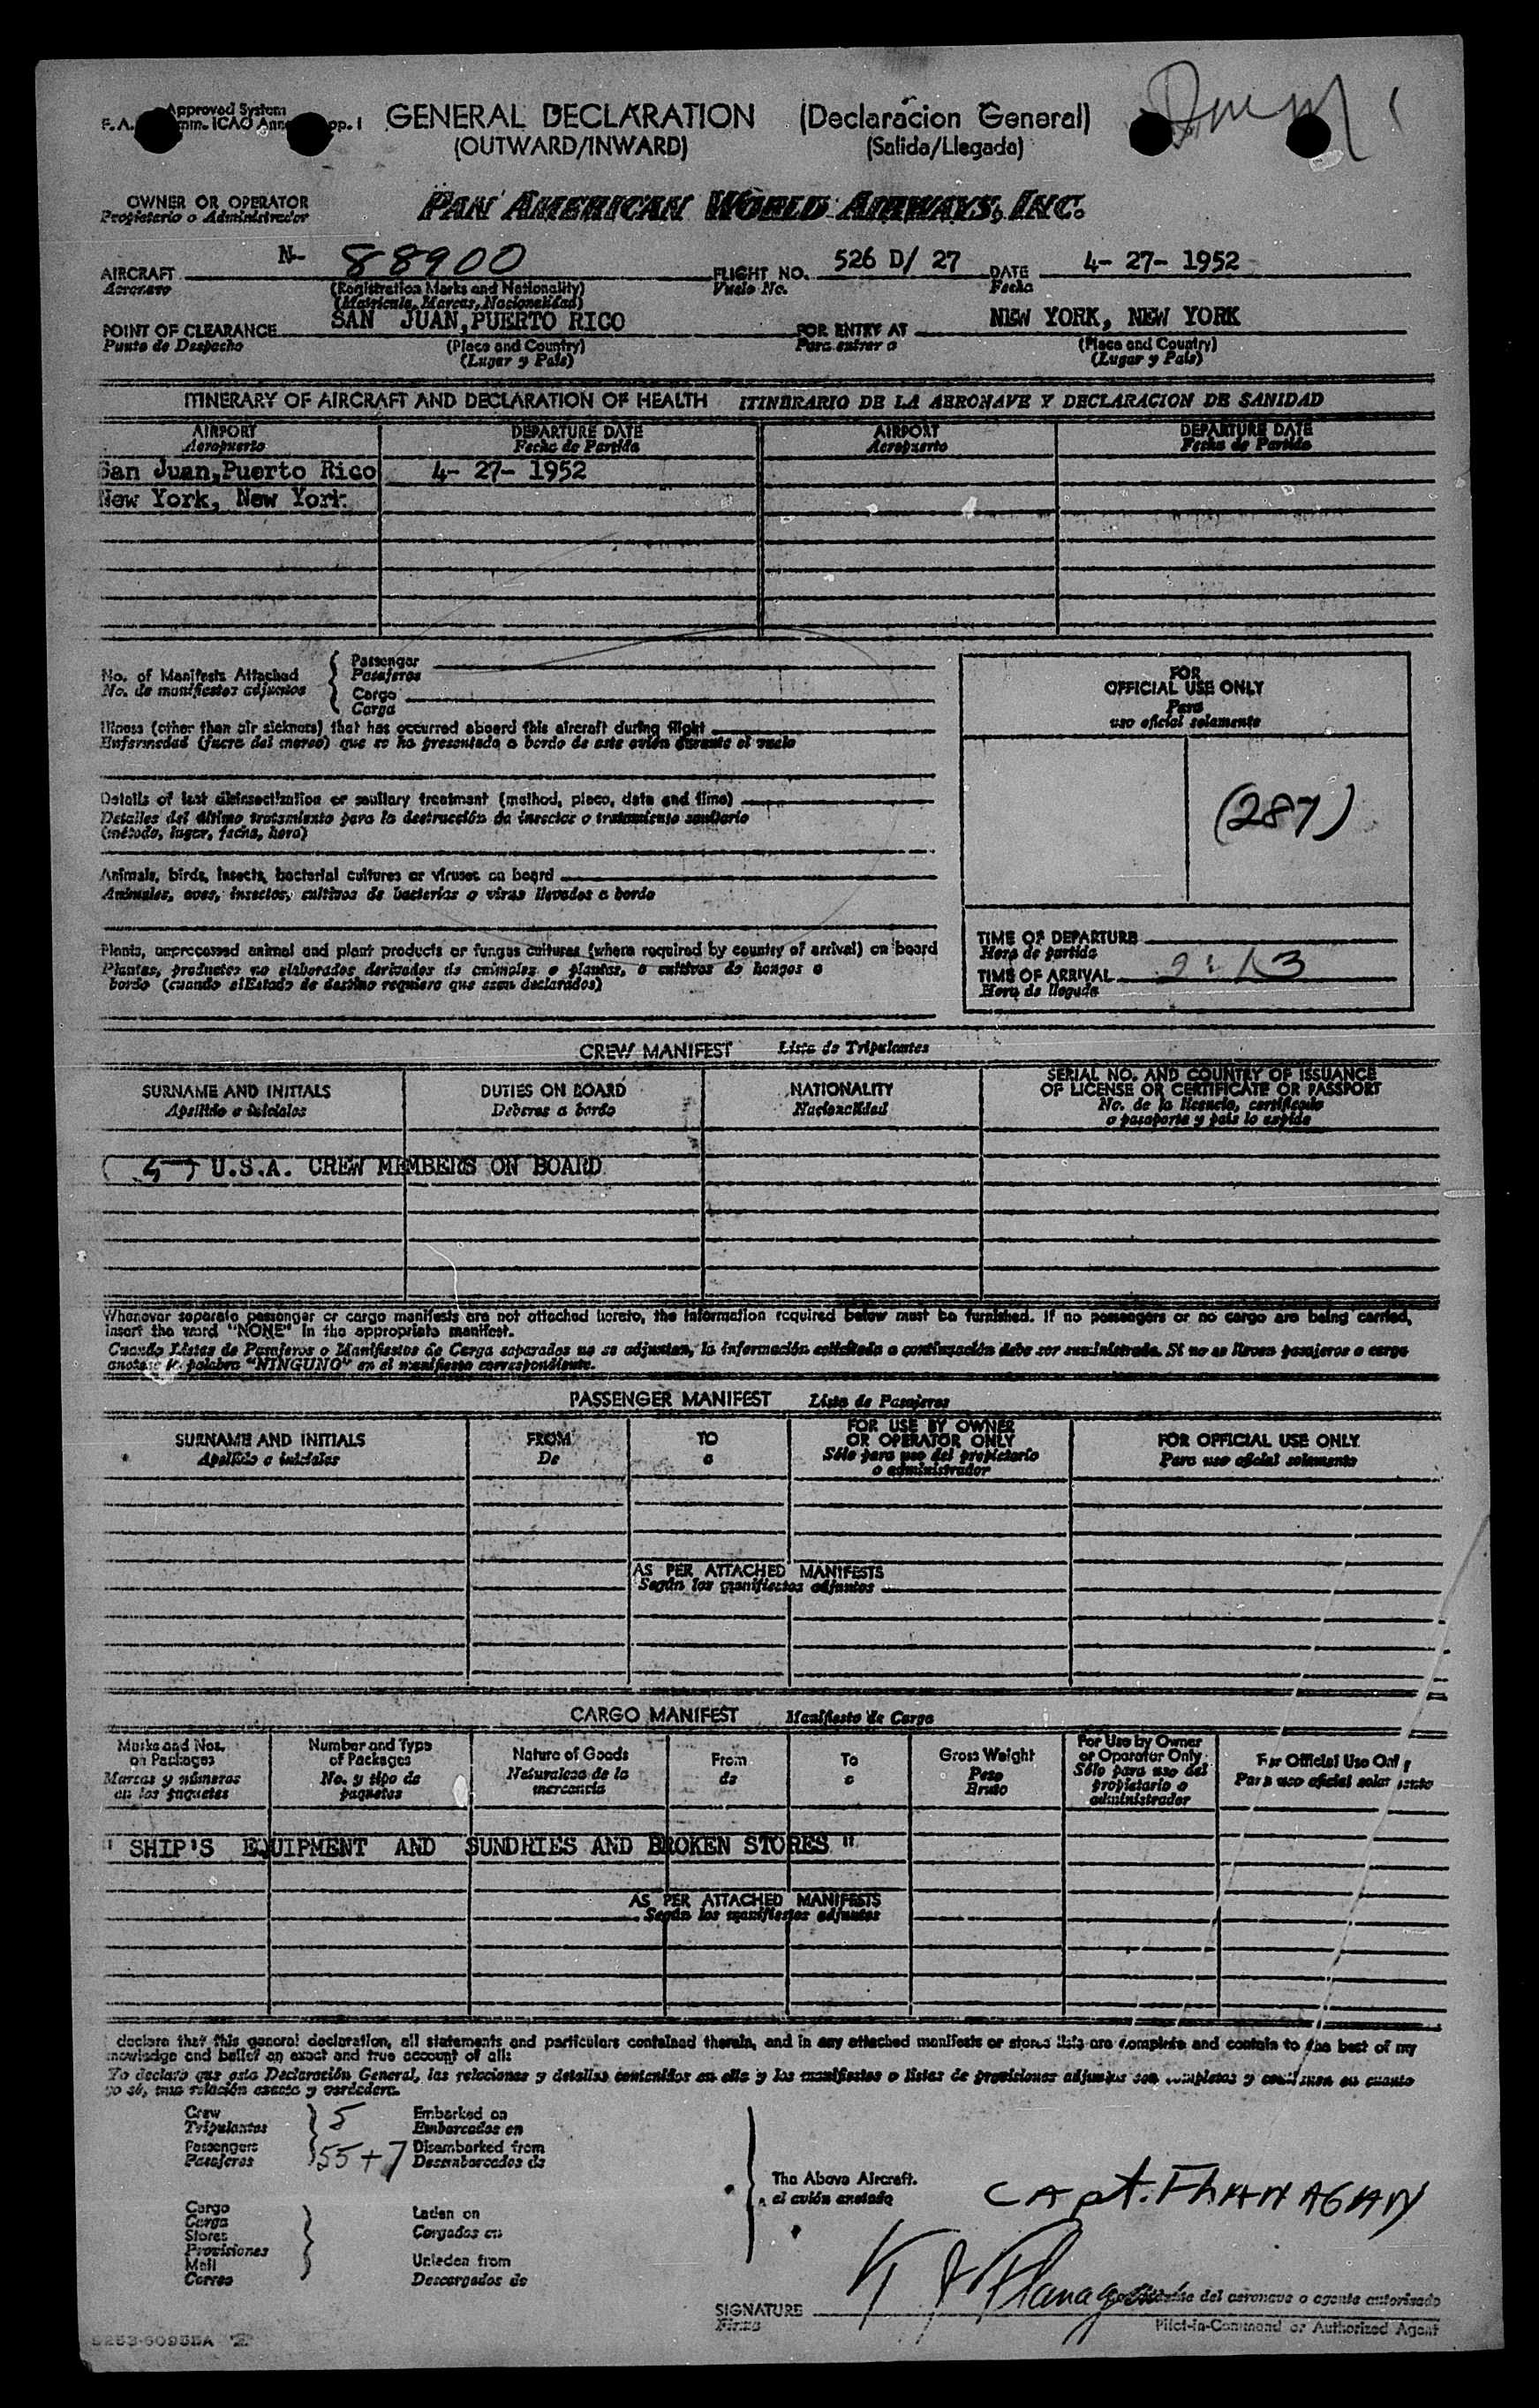 Approved System
GENERAL DECLARATION (Declaracion General)
(OUTWARD/INWARD) (Salida/Llegada)
OWNER OR OPERATOR
Propietario o Administrador
PAN AMERICAN WORLD AIRWAYS, INC.
AIRCRAFT N- 88900 FLIGHT NO. 526 D/ 27 DATE 4- 27- 1952
Aeronave (Registration Marks and Nationality) Vuelo No. Fecha
(Matricula, Marcas, Nacionalidad)
POINT OF CLEARANCE SAN JUAN,PUERTO RICO FOR ENTRY AT NEW YORK, NEW YORK
Punto de Despacho (Place and Country) Para entrar a (Place and Country)
(Lugar y País) (Lugar y País)
ITINERARY OF AIRCRAFT AND DECLARATION OF HEALTH ITINERARIO DE LA AERONAVE Y DECLARACION DE SANIDAD
AIRPORT DEPARTURE DATE AIRPORT DEPARTURE DATE
Aeropuerto Fecha de Partida Aeropuerto Fecha de Partida
San Juan,Puerto Rico 4- 27- 1952
New York, New York
No. of Manifests Attached Passenger
No. de manifiestos adjuntos Pasajeros
Cargo
Carga
Illness (other than air sickness) that has occurred aboard this aircraft during flight
Enfermedad (fuera del mareo) que se ha presentado a bordo de este avión durante el vuelo
Details of last disinsectization or sanitary treatment (method, place, date and time)
Detalles del último tratamiento para la destrucción de insectos o tratamiento sanitario
(método, lugar, fecha, hora)
Animals, birds, insects, bacterial cultures or viruses on board
Animales, aves, insectos, cultivos de bacterias o virus llevados a bordo
Plants, unprocessed animal and plant products or fungus cultures (where required by country of arrival) on board
Plantas, productos no elaborados derivados de animales o plantas, o cultivos de hongos a
bordo (cuando el Estado de destino requiere que sean declarados)
FOR
OFFICIAL USE ONLY
Para
uso oficial solamente
(287)
TIME OF DEPARTURE
Hora de partida
TIME OF ARRIVAL 2:13
Hora de llegada
CREW MANIFEST Lista de Tripulantes
SURNAME AND INITIALS DUTIES ON BOARD NATIONALITY SERIAL NO. AND COUNTRY OF ISSUANCE
OF LICENSE OR CERTIFICATE OR PASSPORT
Apellido e iniciales Deberes a bordo Nacionalidad No. de la licencia, certificado
o pasaporte y país lo expide
U.S.A. CREW MEMBERS ON BOARD
Whenever separate passenger or cargo manifests are not attached hereto, the information required below must be furnished. If no passengers or no cargo are being carried,
insert the word "NONE" in the appropriate manifest.
Cuando Listas de Pasajeros o Manifiestos de Carga separados no se adjuntan, la información solicitada a continuación debe ser suministrada. Si no se llevan pasajeros o carga
anótese la palabra "NINGUNO" en el manifiesto correspondiente.
PASSENGER MANIFEST Lista de Pasajeros
SURNAME AND INITIALS FROM TO FOR USE BY OWNER
OR OPERATOR ONLY FOR OFFICIAL USE ONLY
Apellido e iniciales De a Sólo para uso del propietario
o administrador Para uso oficial solamente
AS PER ATTACHED MANIFESTS
Según los manifiestos adjuntos
CARGO MANIFEST Manifiesto de Carga
Marks and Nos. on Packages Number and Type of Packages Nature of Goods From To Gross Weight For Use by Owner or Operator Only For Official Use Only
Marcas y números en los paquetes No. y tipo de paquetes Naturaleza de la mercancía de a Peso Bruto Sólo para uso del propietario o administrador Para uso oficial solamente
" SHIP'S EQUIPMENT AND SUNDRIES AND BROKEN STORES "
AS PER ATTACHED MANIFESTS
Según los manifiestos adjuntos
declare that this general declaration, all statements and particulars contained therein, and in any attached manifests or stores lists are complete and contain to the best of my
knowledge and belief an exact and true account of all:
Yo declaro que esta Declaración General, las relaciones y detalles contenidos en ella y los manifiestos o listas de provisiones adjuntos son completos y contienen en cuanto
yo sé, una relación exacta y verdadera.
Crew 5 Embarked on
Tripulantes Embarcados en
Passengers 55+7 Disembarked from
Pasajeros Desembarcados de
The Above Aircraft.
el avión anotado
CAPT. FLANAGAN
Cargo
Carga Laden on
Stores Cargados en
Provisiones
Mail Unladen from
Correo Descargados de
SIGNATURE Flanagan del aeronave o agente autorizado
Firma Pilot-in-Command or Authorized Agent